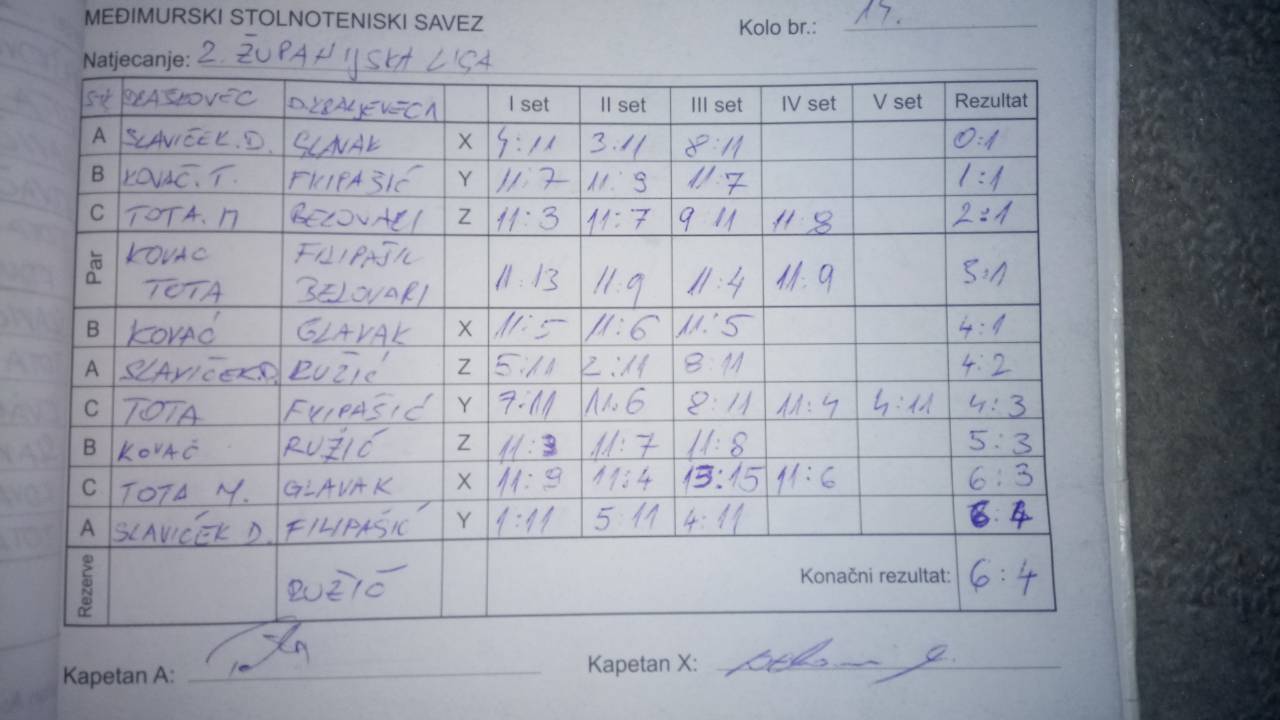 MEĐIMURSKI STOLNOTENISKI SAVEZ
Kolo br.: 14.
Natjecanje: 2. ŽUPANIJSKA LIGA
DRAŠKOVEC D.KRALJEVEC I set II set III set IV set V set Rezultat
A SLAVIČEK.D. GLAVAK X 4:11 3:11 8:11 0:1
B KOVAČ.T. FILIPAŠIĆ Y 11:7 11:9 11:7 1:1
C TOTA.M BELOVARI Z 11:3 11:7 9 11 11:8 2:1
Par KOVAČ FILIPAŠIĆ
TOTA BELOVARI 11:13 11:9 11:4 11:9 3:1
B KOVAČ GLAVAK X 11:5 11:6 11:5 4:1
A SLAVIČEK D. RUŽIĆ Z 5:11 2:11 8:11 4:2
C TOTA FILIPAŠIĆ Y 7:11 11:6 8:11 11:4 4:11 4:3
B KOVAČ RUŽIĆ Z 11:3 11:7 11:8 5:3
C TOTA M. GLAVAK X 11:9 11:4 13:15 11:6 6:3
A SLAVIČEK D. FILIPAŠIĆ Y 1:11 5:11 4:11 6:4
Rezerve RUŽIĆ Konačni rezultat: 6:4
Kapetan A: Kapetan X: